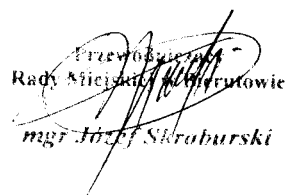 Przewodniczący
Rady Miejskiej w Bierutowie
mgr Józef Skroburski